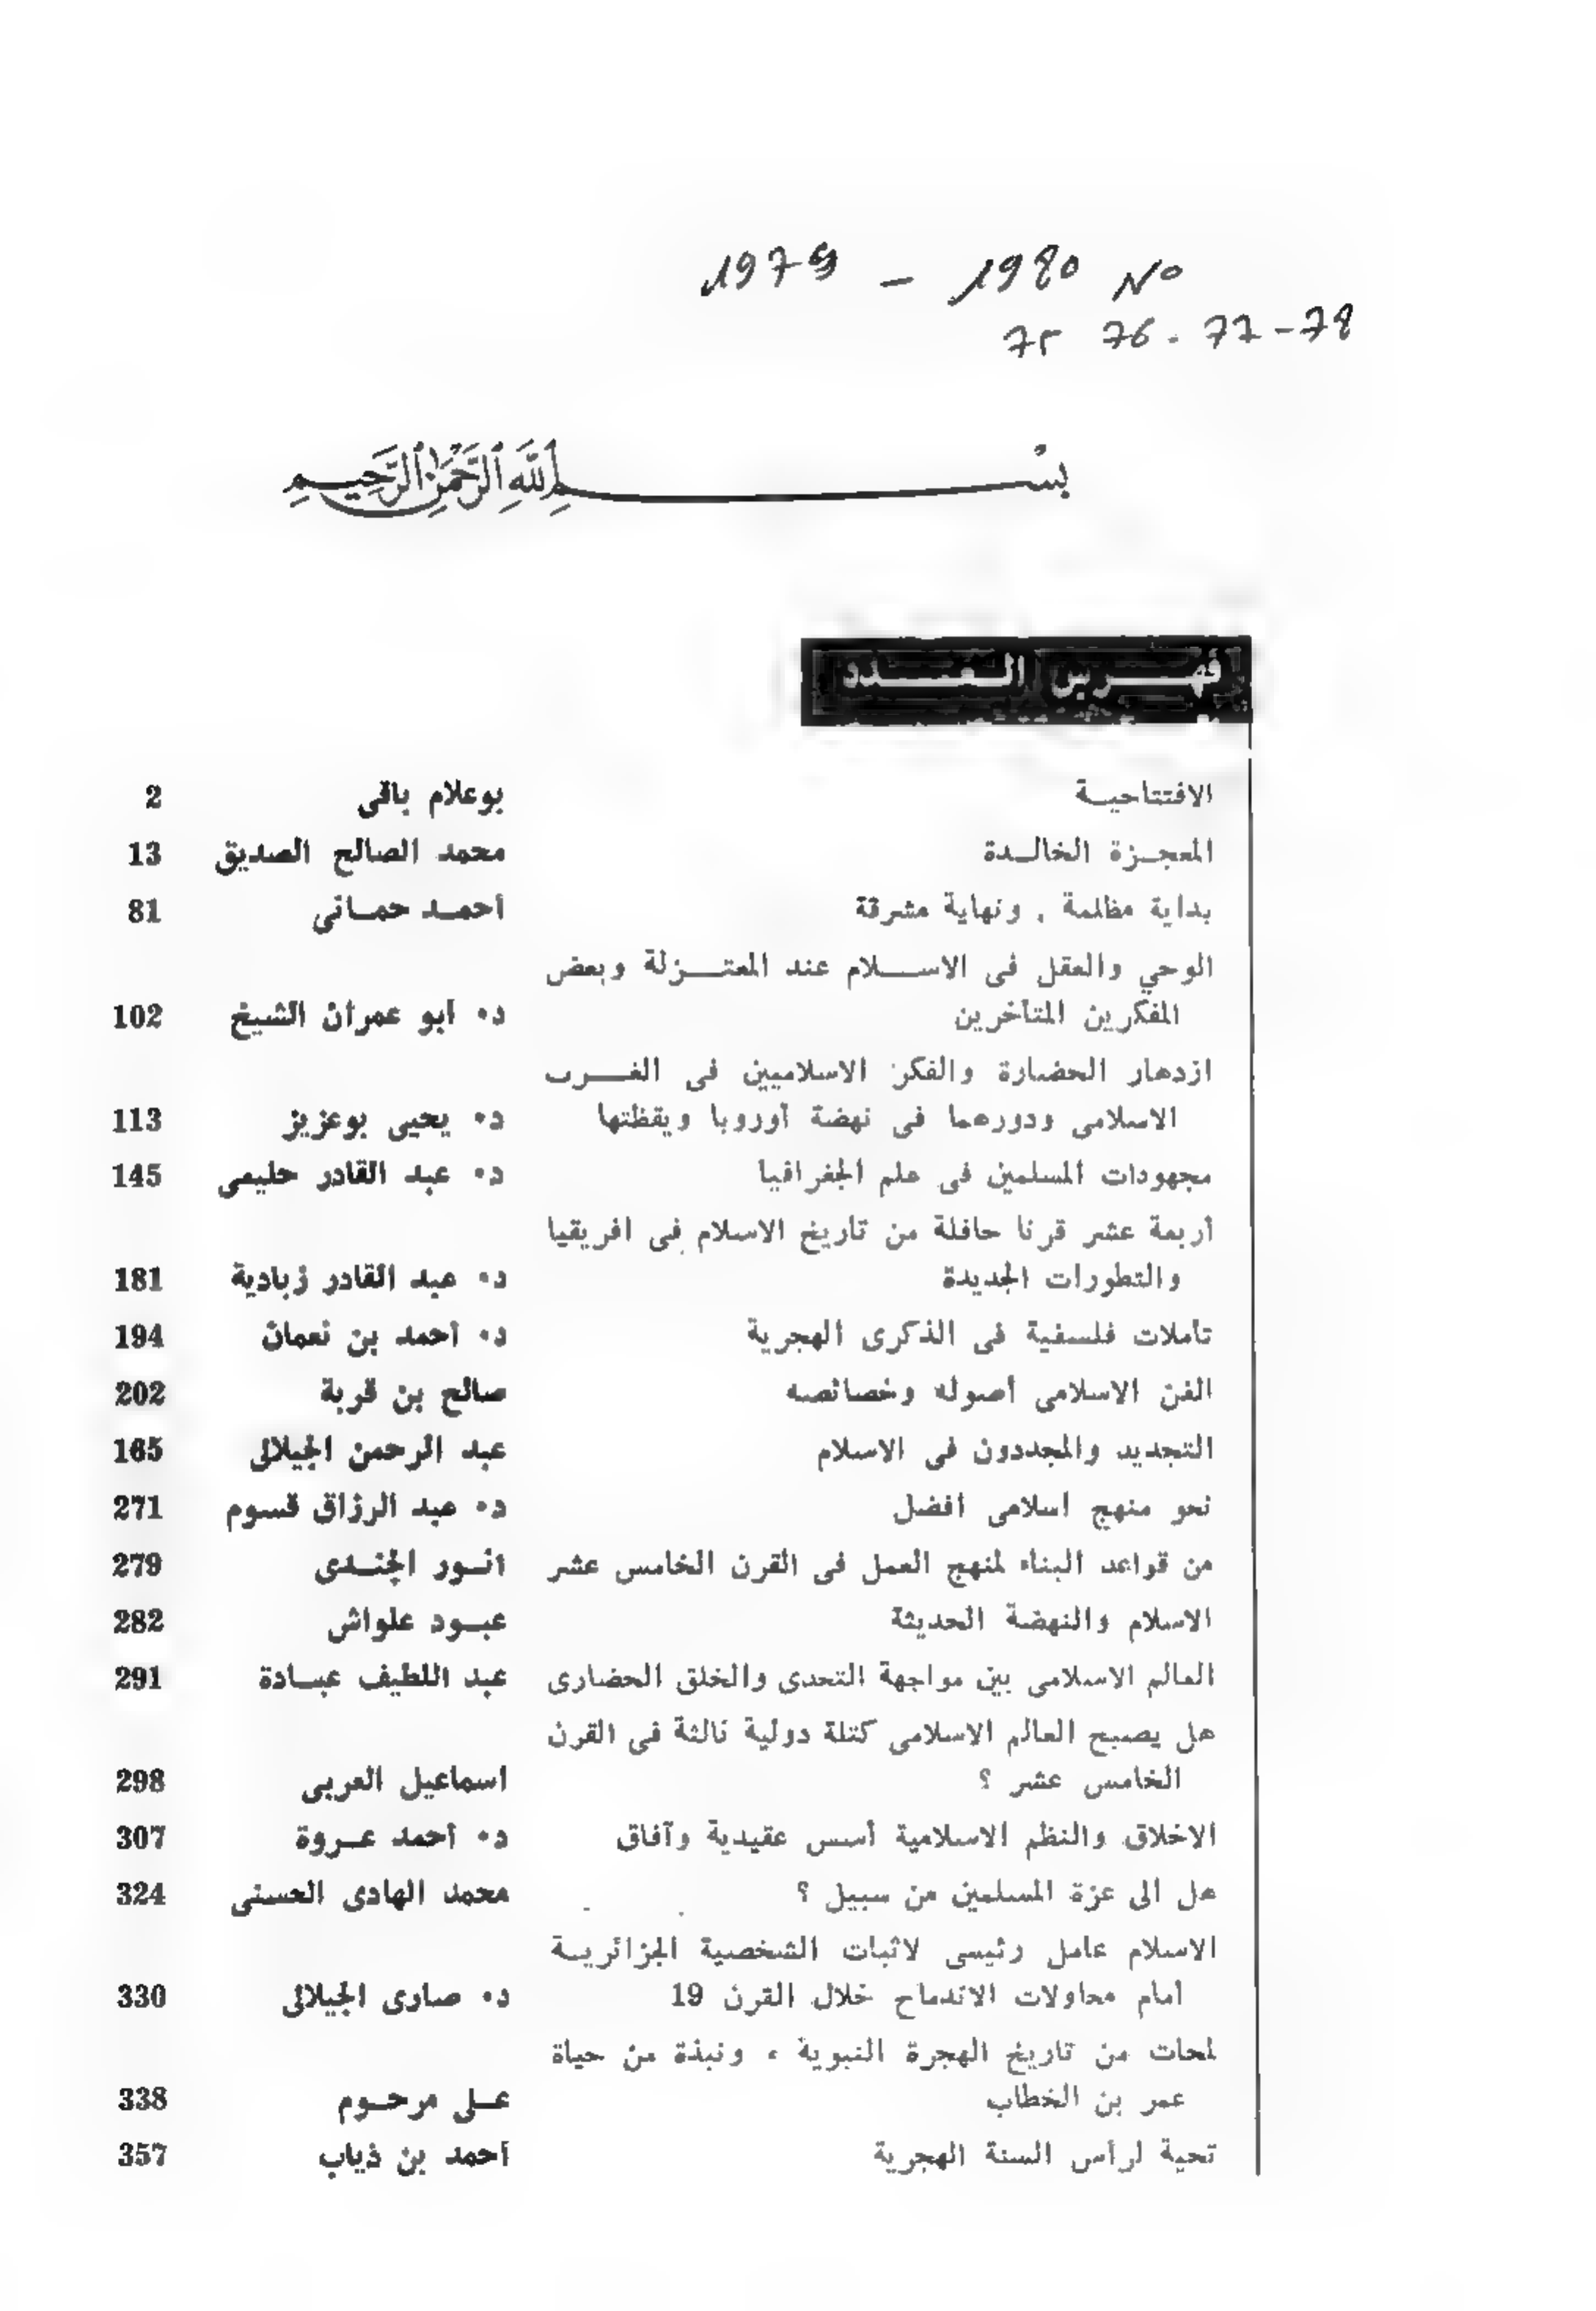 1979 - 1980 No
75 76 - 77 - 78
بسم الله الرحمن الرحيم
فهرس العدد
الافتتاحية بوعلام باقى 2
المعجزة الخالدة محمد الصالح الصديق 13
بداية مظلمة ، ونهاية مشرقة أحمد حمانى 81
الوحي والعقل فى الاسلام عند المعتزلة وبعض
المفكرين المتأخرين د٠ أبو عمران الشيخ 102
ازدهار الحضارة والفكر الاسلاميين فى الغرب
الاسلامى ودورهما فى نهضة أوروبا ويقظتها د٠ يحيى بوعزيز 113
مجهودات المسلمين فى علم الجغرافيا د٠ عبد القادر حليمى 145
أربعة عشر قرنا حافلة من تاريخ الاسلام فى افريقيا
والتطورات الجديدة د٠ عبد القادر زبادية 181
تأملات فلسفية فى الذكرى الهجرية د٠ أحمد بن نعمان 194
الفن الاسلامى أصوله وخصائصه صالح بن قربة 202
التجديد والمجددون فى الاسلام عبد الرحمن الجيلالى 165
نحو منهج اسلامى أفضل د٠ عبد الرزاق قسوم 271
من قواعد البناء لمنهج العمل فى القرن الخامس عشر أنور الجندى 279
الاسلام والنهضة الحديثة عبود علواش 282
العالم الاسلامى بين مواجهة التحدى والخلق الحضارى عبد اللطيف عبادة 291
هل يصبح العالم الاسلامى كتلة دولية ثالثة فى القرن
الخامس عشر ؟ اسماعيل العربى 298
الاخلاق والنظم الاسلامية أسس عقيدية وآفاق د٠ أحمد عروة 307
هل الى عزة المسلمين من سبيل ؟ محمد الهادى الحسنى 324
الاسلام عامل رئيسى لاثبات الشخصية الجزائرية
أمام محاولات الاندماج خلال القرن 19 د٠ صارى الجيلالى 330
لمحات من تاريخ الهجرة النبوية ، ونبذة من حياة
عمر بن الخطاب على مرحوم 338
تحية لرأس السنة الهجرية أحمد بن ذياب 357